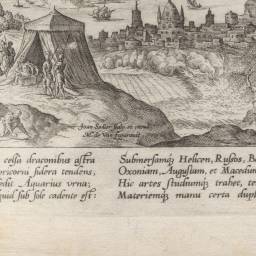 Joan Sadler scalp. et excud.
M. de Vos figuravit.
celsa draconibus astra
pricorni sidera tendens,
edit Aquarius vrna;
quid sub sole cadente est:
Submersamq; Helicen, Rufos, B
Oxoniam, Augustam, et Macedum
Hic artes studiumq; trahet, te
Materiemq; manu certa dupl